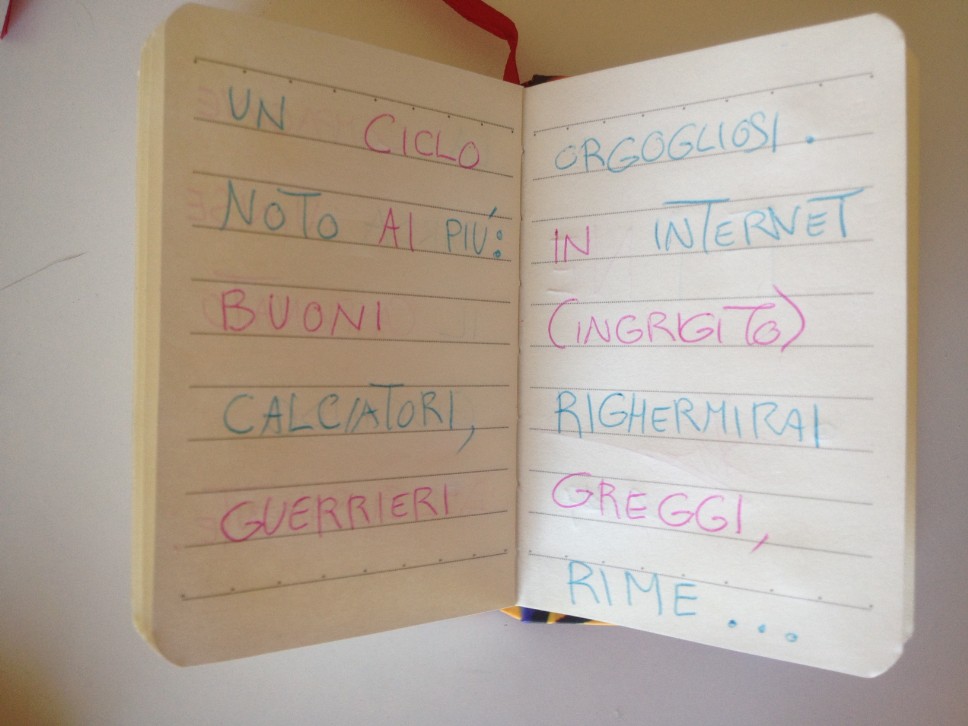 UN CICLO
NOTO AI PIÚ:
BUONI
CALCIATORI,
GUERRIERI
ORGOGLIOSI.
IN INTERNET
(INGRIGITO)
RIGHERMIRAI
GREGGI,
RIME...